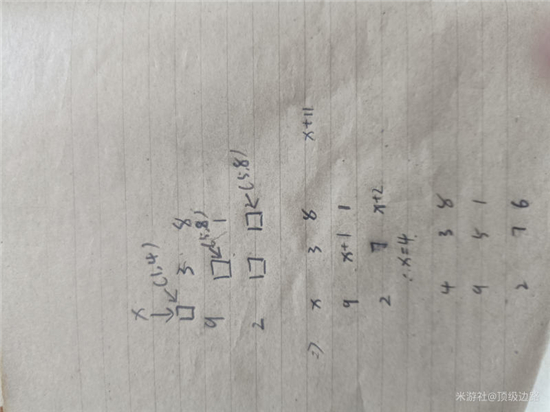 x
↓ ↙(1,4)
□ 3 8
9 □↙(5,8) 1
2 □ □↙(5,8)
=> x 3 8 x+11
9 x+1 1
2 7 x+2
∴x=4.
4 3 8
9 5 1
2 7 6
米游社@顶级边